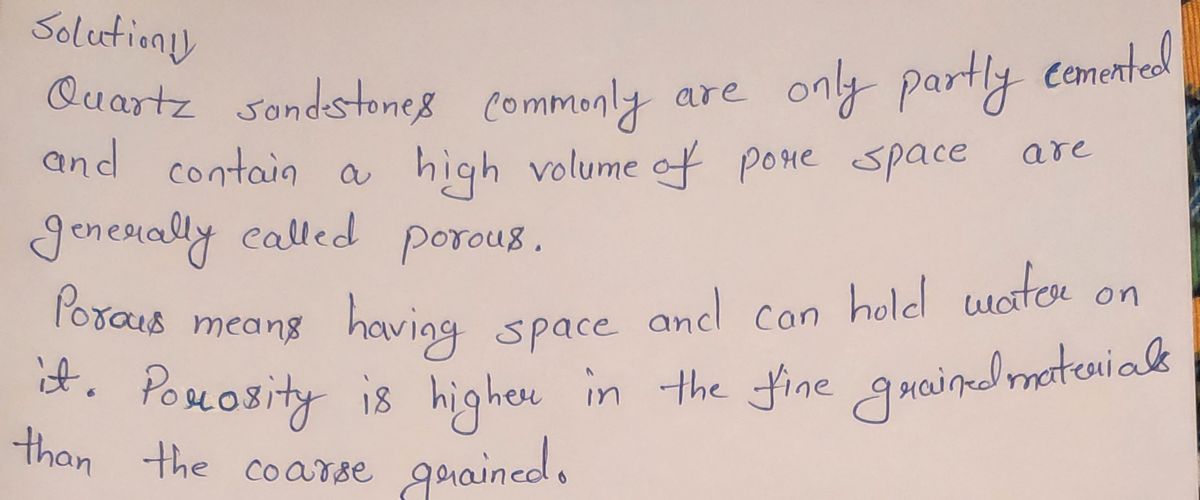 Solution
Quartz sandstones commonly are only partly cemented
and contain a high volume of pore space are
generally called porous.
Porous means having space and can hold water on
it. Porosity is higher in the fine grained materials
than the coarse grained.